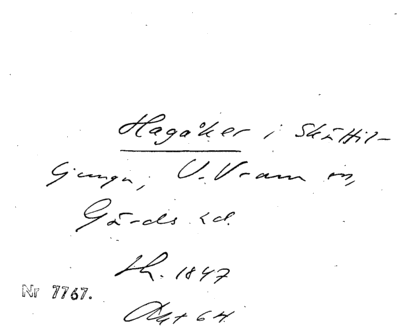 Hagåker i Skättil-
ljunga, V. Vram sn,
Gärds hd.
Sk. 1847
Nr 7767.
Akt 64